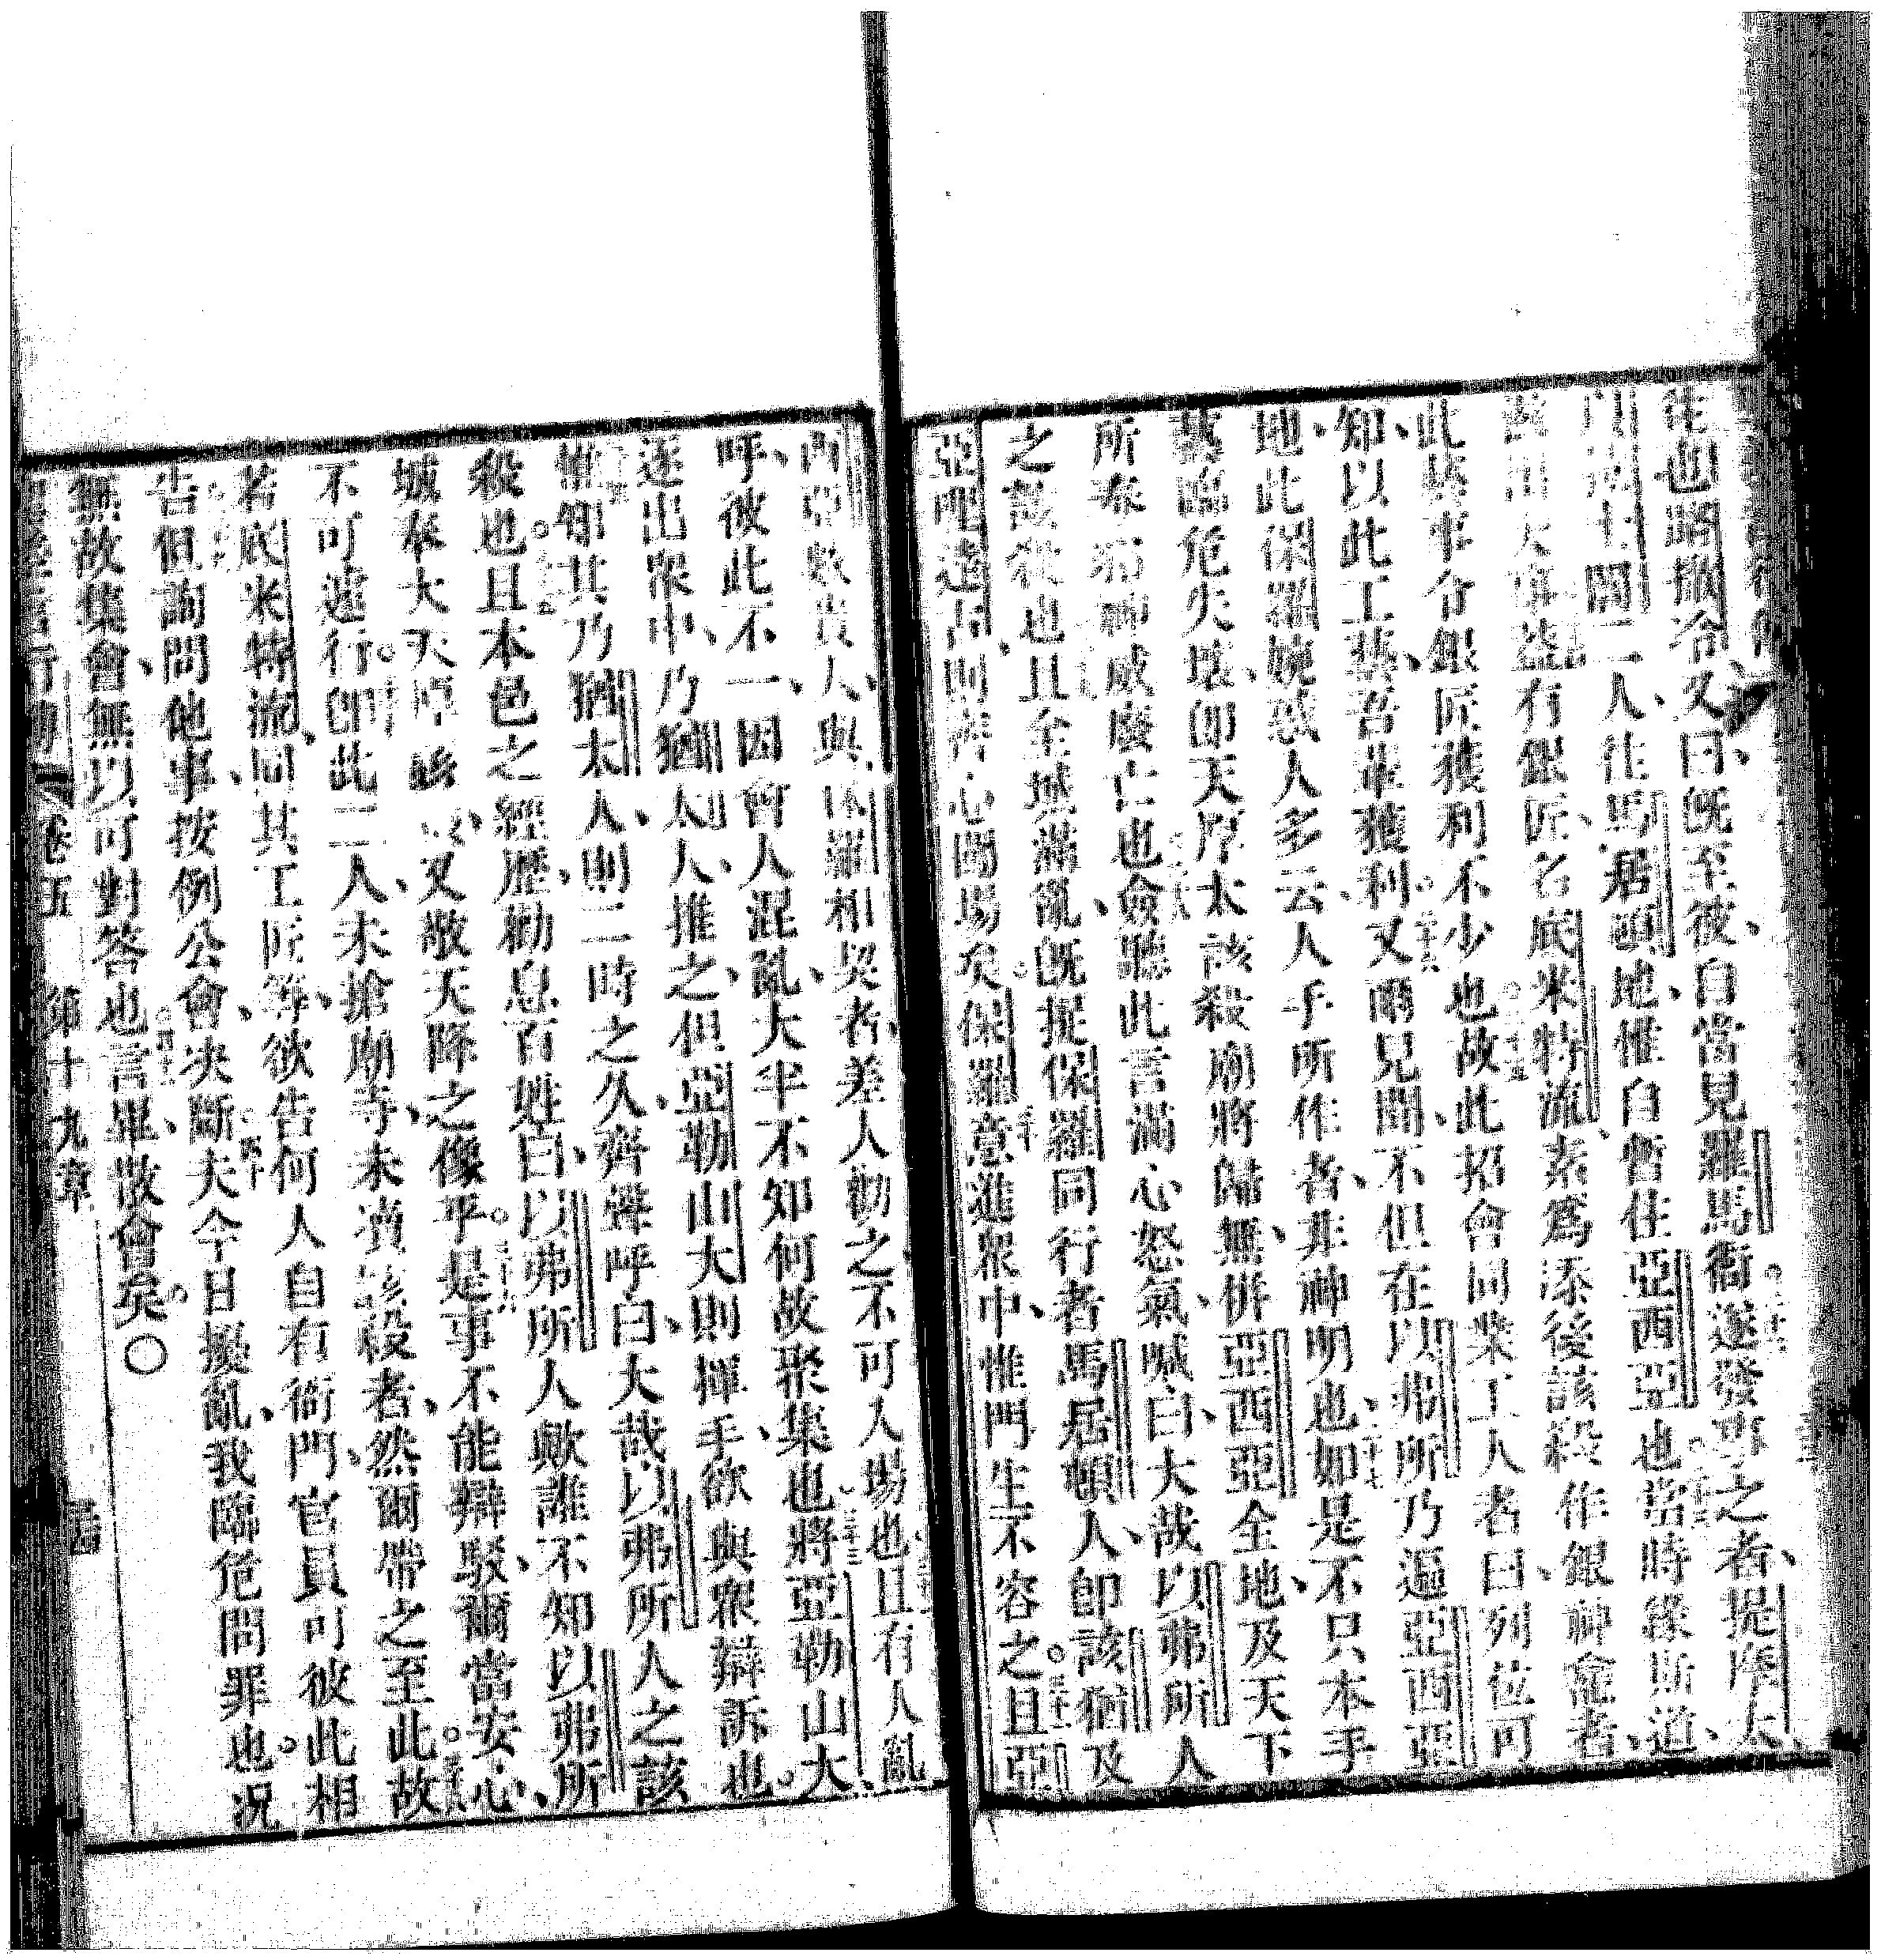 生也路撒冷又曰既至彼自當見羅馬衙遂發事之者提摩太
門流士閣二人往馬居頓地惟自暫住亞西亞也當時緣斯道
出大事蓋有銀匠名底米特流素爲添後該殺作銀神龕者
此與事令銀匠獲利不少也故此招會同業工人者曰列位可
知以此工藝吾輩獲利又爾見聞不但在以弗所乃遍亞西亞
地此保羅婉惑人多云人手所作者非神明也如是不只本手
藝臨危失壞卽天厚太該殺廟將歸無併亞西亞全地及天下
所奉神威廢亡也僉聽此言滿心怒氣喊曰大哉以弗所人
之該殺也且全城滿亂旣捉保羅同行者馬居頓人卽該猶及
亞吧達古則齊心闖場矣保羅意進眾中惟門生不容之且亞
西亞數貴人與保羅相契者差人勸之不可入場也且有人亂
呼彼此不一因會人混亂大半不知何故聚集也將亞勒山大
逐出眾中乃猶太人推之但亞勒山大則揮手欲與眾辯訴也
惟知其乃猶太人則二時之久齊聲呼曰大哉以弗所人之該
殺也且本邑之經歷勸息百姓曰以弗所人歟誰不知以弗所
城奉大天厚 又敬天降之像乎是事不能辯駁爾當安心
不可遽行卽此二人未搶廟寺未凟該殺者然爾帶之至此故
若底米特流同其工匠等欲告何人自有衙門官員可彼此相
告但詢問他事按例公會決斷夫今日擾亂我臨危問罪也況
無故集會無以可對答也言畢散會矣〇
行傳 卷五 第十九章